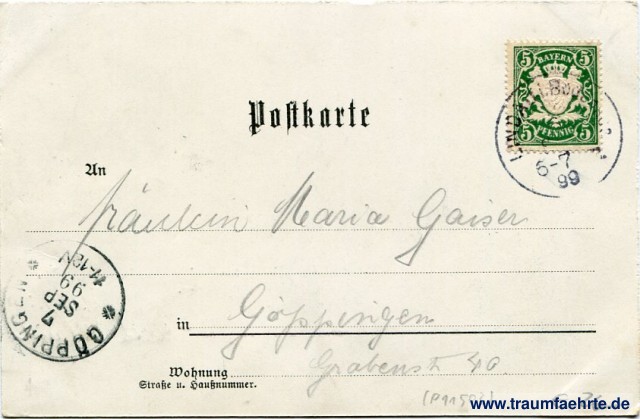 5 BAYERN 5
5 PFENNIG 5
LINDAU
6-7
99
Postkarte
An
Fräulein Maria Gaiser
GÖPPINGEN
7
SEP
99
11-12N
in Göppingen
Grabenstr 40
Wohnung
Straße u. Haußnummer.
www.traumfaehrte.de